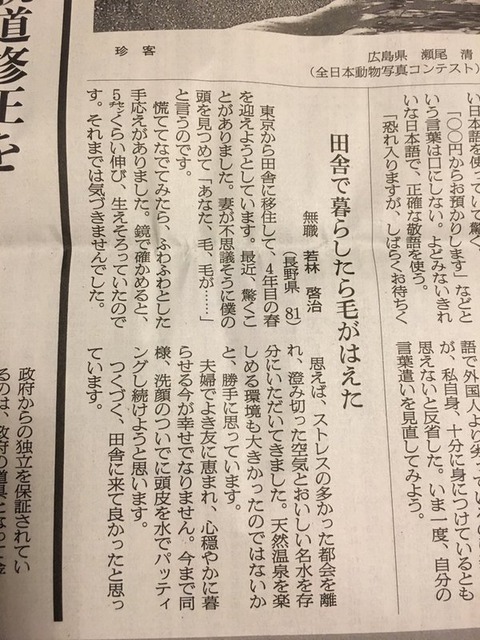 珍客
広島県　瀬尾　清
（全日本動物写真コンテスト）
軌道修正を
い日本語を使っていて驚く。
「〇〇円からお預かりします」などと
いう言葉は口にしない。よどみないきれ
いな日本語で、正確な敬語を使う。
「恐れ入りますが、しばらくお待ちく
語で外国人より劣っているとも
が、私自身、十分に身につけているとも
思えないと反省した。いま一度、自分の
言葉遣いを見直してみよう。
田舎で暮らしたら毛がはえた
無職　若林　啓治
（長野県　81）
東京から田舎に移住して、4年目の春
を迎えようとしています。最近、驚くこ
とがありました。妻が不思議そうに僕の
頭を見つめて「あなた、毛、毛が……」
と言うのです。
慌ててなでてみたら、ふわふわとした
手応えがありました。鏡で確かめると、
5㌢くらい伸び、生えそろっていたので
す。それまでは気づきませんでした。
思えば、ストレスの多かった都会を離
れ、澄み切った空気とおいしい名水を存
分にいただいてきました。天然温泉を楽
しめる環境も大きかったのではないか
と、勝手に思っています。
夫婦でよき友に恵まれ、心穏やかに暮
らせる今が幸せでなりません。今まで同
様、洗顔のついでに頭皮を水でパッティ
ングし続けようと思います。
つくづく、田舎に来て良かったと思っ
ています。
政府からの独立を保証されてい
るのは、政府の道具になって